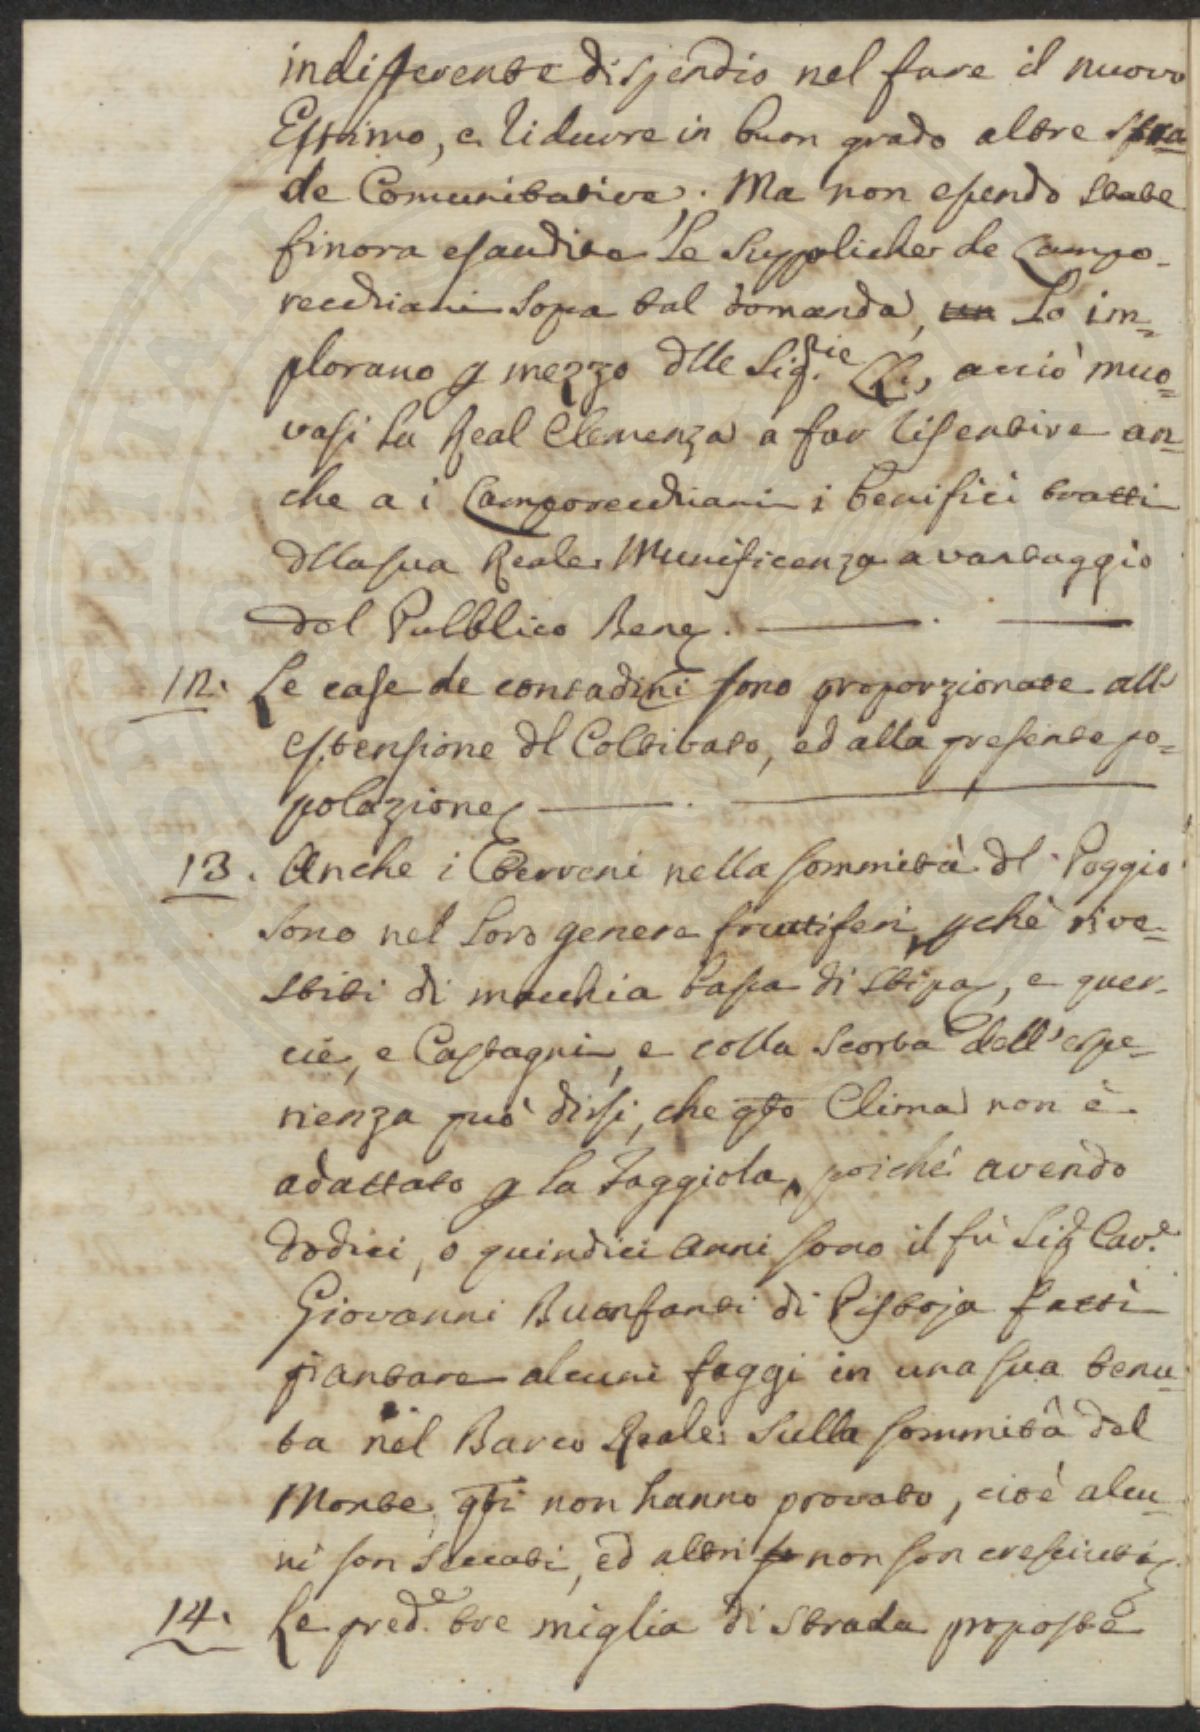 indifferente dispendio nel fare il nuovo
Estimo, e ridurre in buon grado altre stra
de Comunitative. Ma non essendo state
finora esaudite le suppliche de Campo-
recchiani sopra tal domanda, Lo im=
plorano p mezzo dlle Sig.rie LL., acciò muo=
vasi la Real Clemenza a far risentire an=
che a i Camporecchiani i benifici tratti
dlla sua Reale Munificenza a vantaggio
del Pubblico Bene.
12. Le case de contadini sono proporzionate all'
estensione dl Coltivato, ed alla presente po=
polazione
13. Anche i Terreni nella sommità dl Poggio
sono nel loro genere fruttiferi, pchè rive=
stiti di macchia bassa di stipa, e quer-
cie, e Castagni, e colla scorta dell'espe-
rienza può dirsi, che qto Clima non è
adattato p la Faggiola, poichè avendo
dodici, o quindici anni sono il fù Sig.r Cav.e
Giovanni Buonfanti di Pistoja fatti
piantare alcuni faggi in una sua tenu=
ta nel Barco Reale sulla sommità del
Monte, qti non hanno provato, cioè alcu=
ni son seccati, ed altri non son cresciuti
14. Le pred.e tre miglia di strada proposte